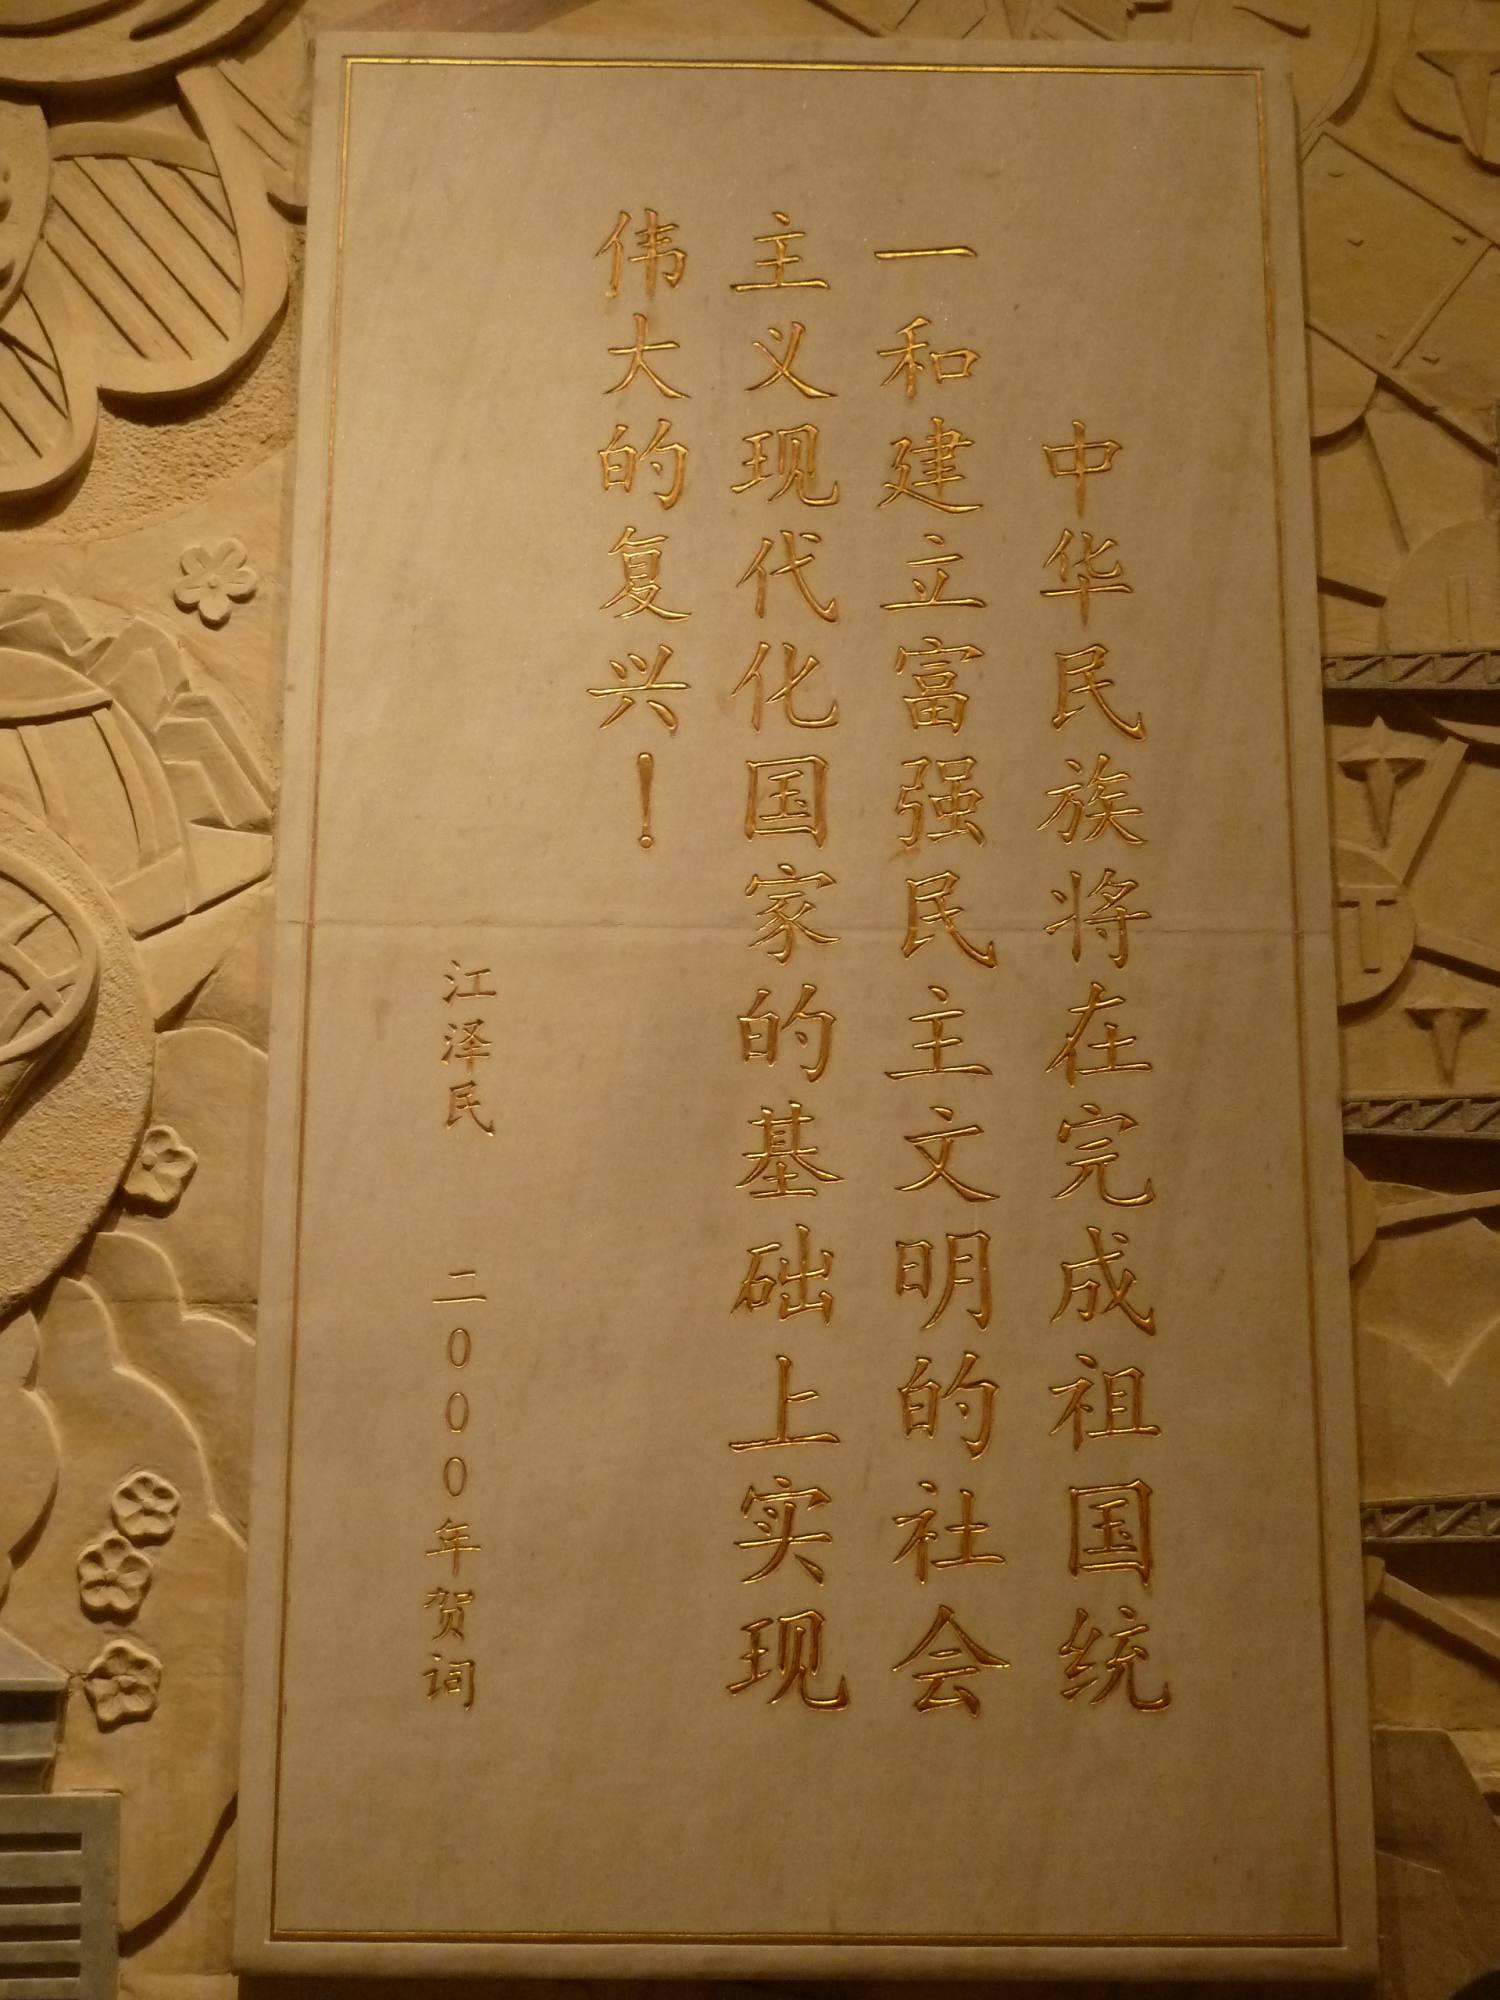 中华民族将在完成祖国统
一和建立富强民主文明的社会
主义现代化国家的基础上实现
伟大的复兴！
江泽民 二000年贺词